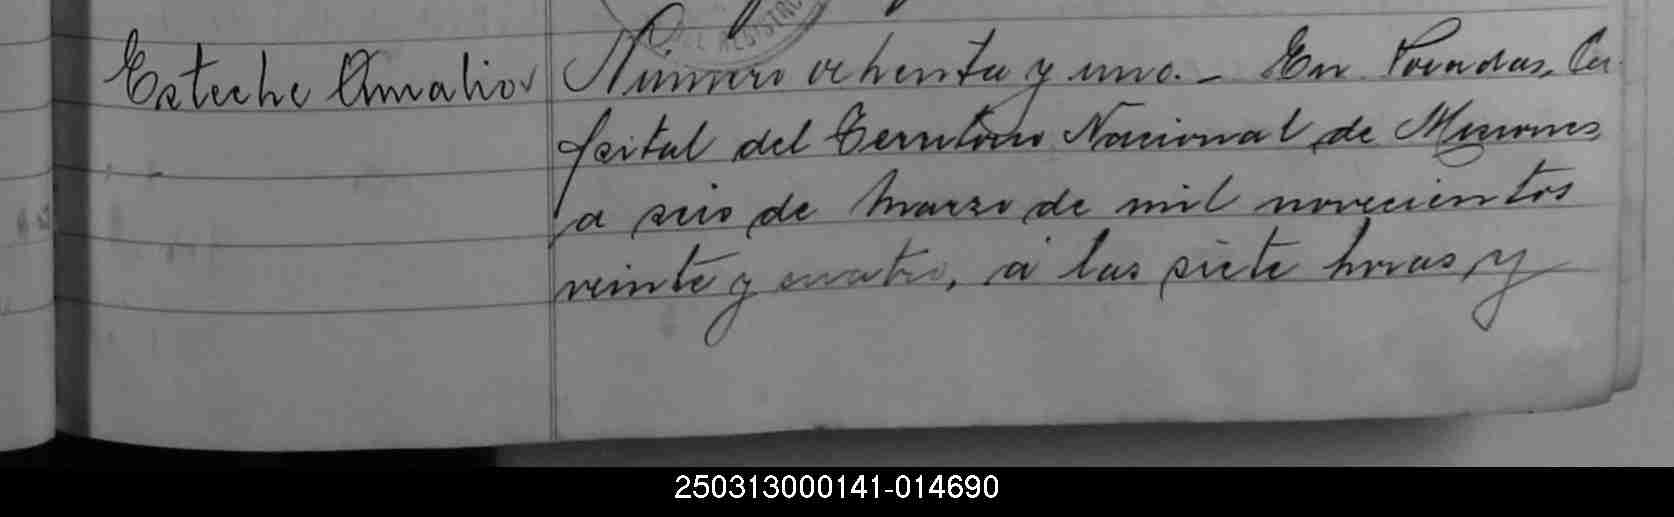 Esteche Amalio
Número ochenta y uno. - En Posadas, Ca
pital del Territorio Nacional de Misiones
a seis de Marzo de mil novecientos
veinte y cuatro, á las siete horas y
250313000141-014690